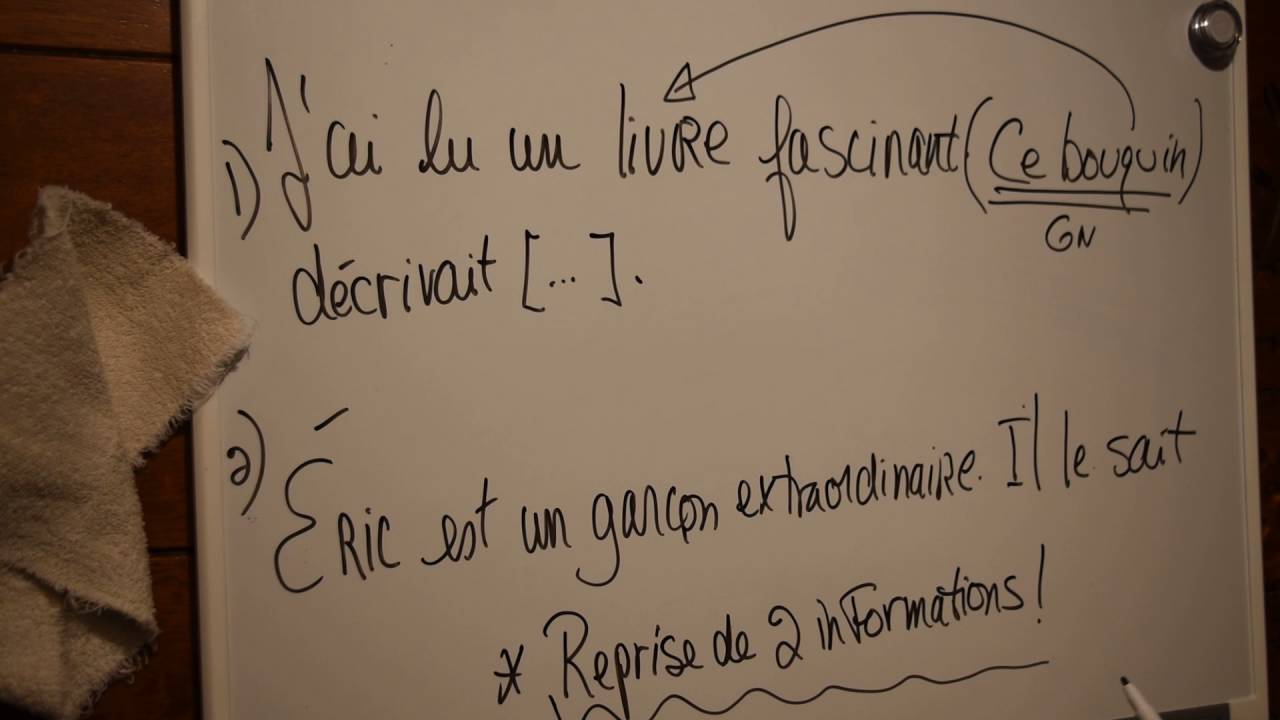 1) J'ai lu un livre fascinant (Ce bouquin)
GN
décrivait [...].
2) Éric est un garçon extraordinaire. Il le sait
* Reprise de 2 informations!